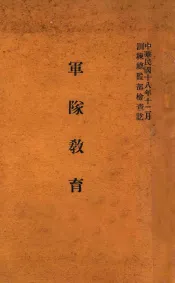 中華民國十八年十二月
訓練總監部檢查訖
軍隊教育